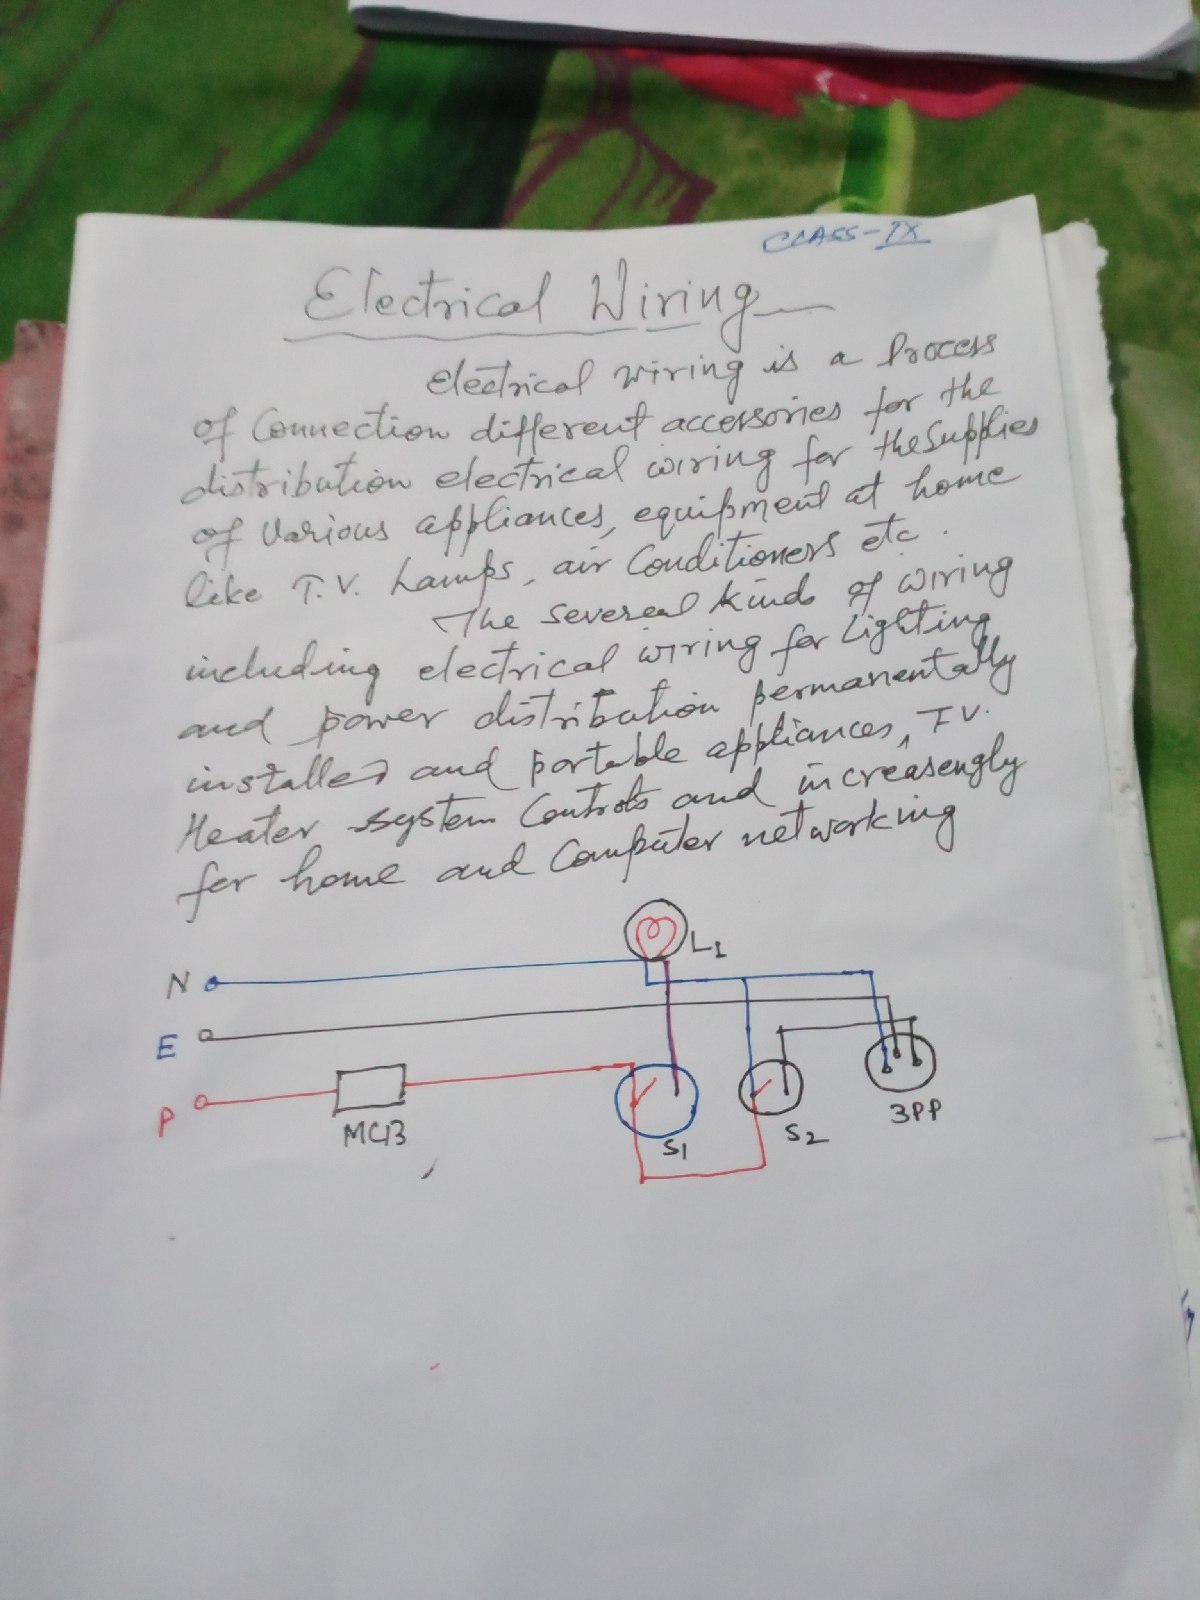 CLASS-IX
Electrical Wiring
Electrical wiring is a Process
of Connection different accessories for the
distribution electrical wiring for the Supplies
of various appliances, equipment at home
like T.V. Lamps, air Conditioners etc.
The severeal kinds of wiring
including electrical wiring for Lighting
and power distribution permanentally
installed and portable appliances, T.V.
Heater system Controls and increasengly
for home and Computer networking
L1
N
E
P
MCB
S1
S2
3PP